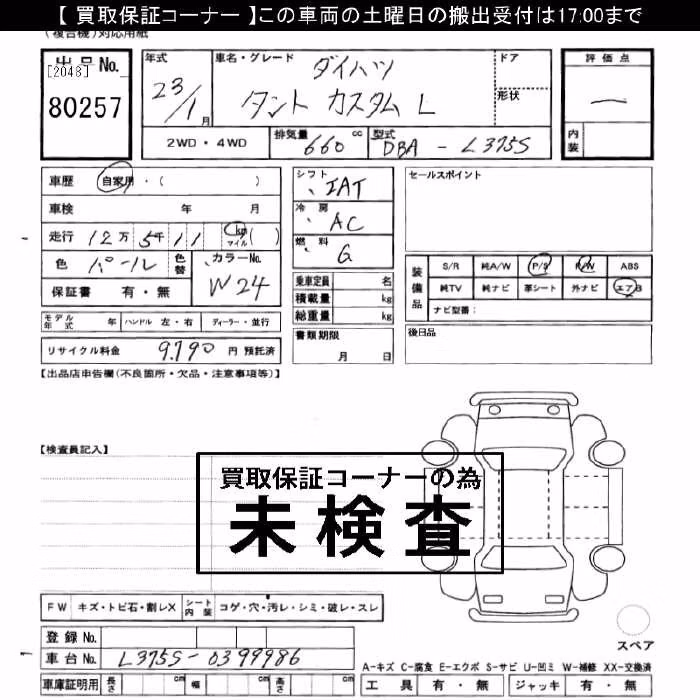 【 買取保証コーナー 】この車両の土曜日の搬出受付は17:00まで
(複合機)対応用紙
出品No.
[2048]
80257
年式 車名・グレード ドア 評価点
23/1月 ダイハツ 形状 —
タント カスタム L
2WD・4WD 排気量 660 cc 型式 DBA - L375S 内装
車歴 自家用・( )
車検 年 月
走行 12万 5千 11 km マイル ( )
色 パール 色替 カラーNo. W24
保証書 有・無
シフト IAT
冷房 AC
燃料 G
乗車定員 名
積載量 kg
総重量 kg
セールスポイント
装備品 S/R 純A/W P/S P/W ABS
純TV 純ナビ 革シート 外ナビ エアB
ナビ型番:
モデル年式 年 ハンドル 左・右 ディーラー・並行
書類期限 月 日
後日品
リサイクル料金 9.790 円 預託済
【出品店申告欄(不良箇所・欠品・注意事項等)】
【検査員記入】
買取保証コーナーの為
未検査
FW キズ・トビ石・割レX シート内装 コゲ・穴・汚レ・シミ・破レ・スレ
スペア
登録No.
車台No. L375S-0399986
A-キズ C-腐食 E-エクボ S-サビ U-凹ミ W-補修 XX-交換済
車庫証明用 長さ cm 幅 cm 高さ cm
工具 有・無 ジャッキ 有・無